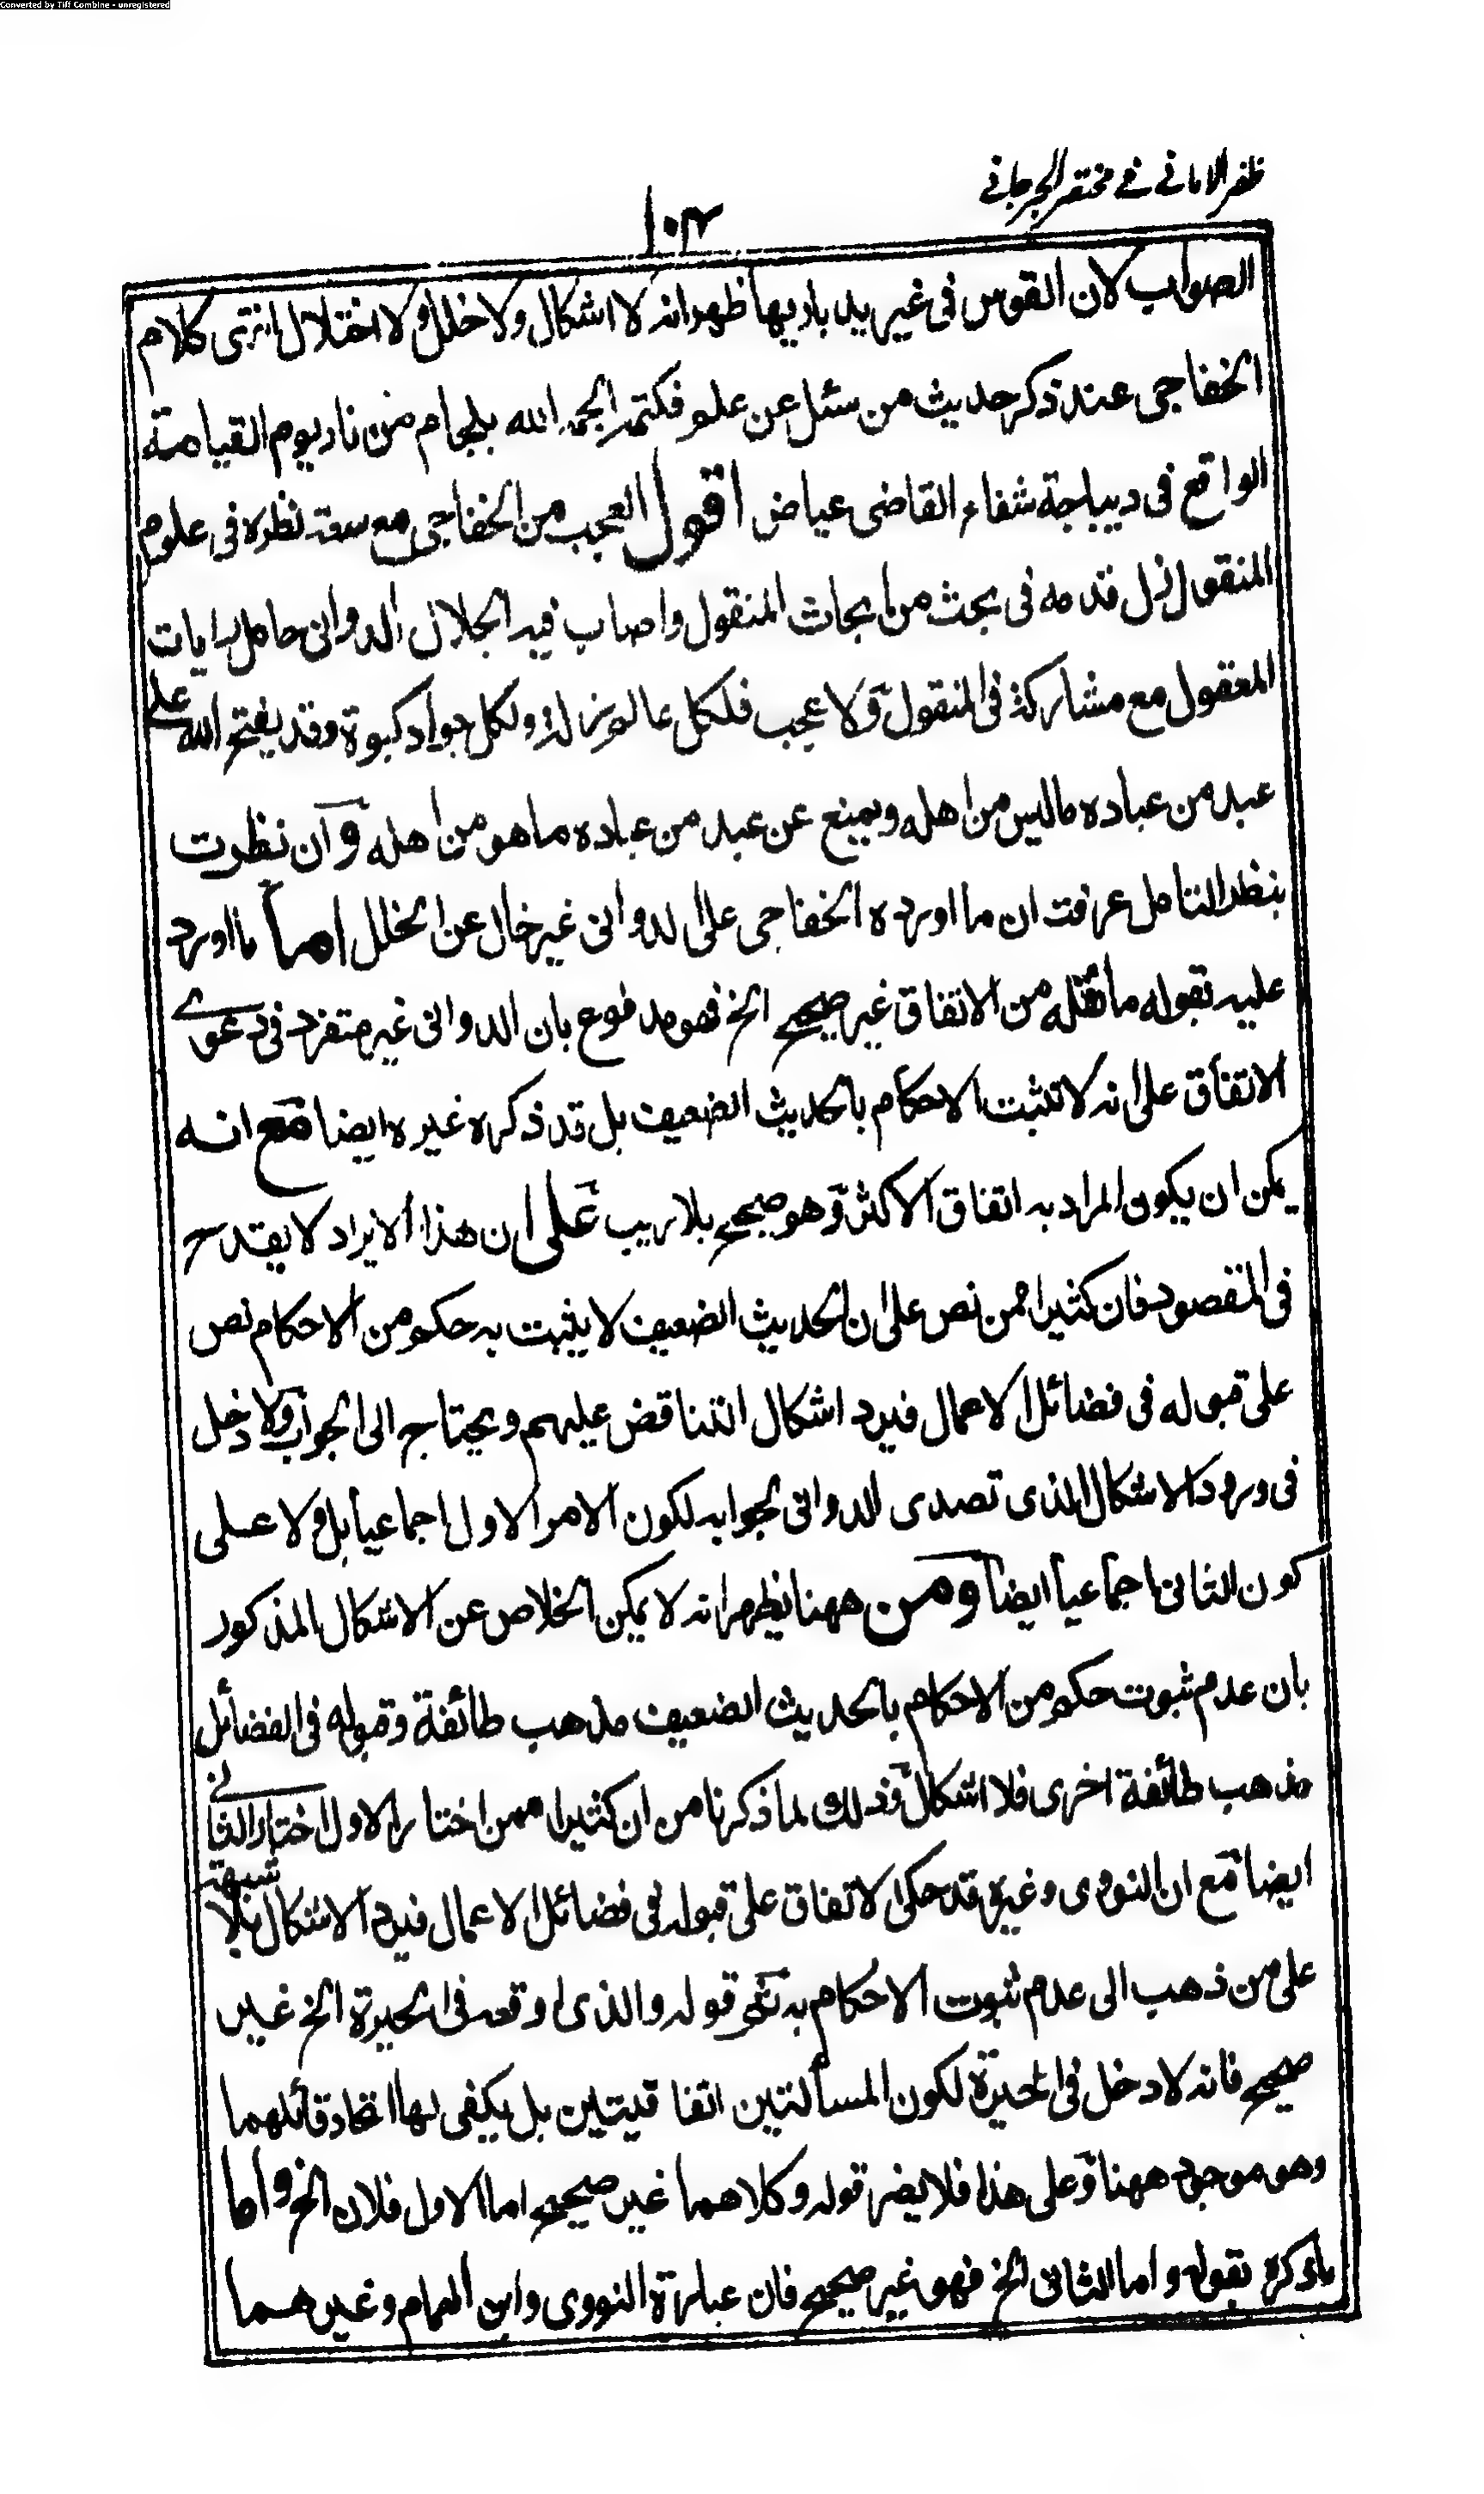 Converted by Tiff Combine - unregistered
ظفر الامانی فی مختصر الجرجانی
١٠٤
الصواب لان القوس فی غیر ید باریها ظهر انه لا اشکال ولا خلل ولا اختلال انتهی کلام
الخفاجی عند ذکر حدیث من سئل عن علم فکتمه الجمه الله بلجام من نار یوم القیامة
الواقع فی دیباجة شفاء القاضی عیاض اقول العجب من الخفاجی مع سعة نظره فی علوم
المنقول زل قدمه فی بحث من ابحاث المنقول واصاب فیه الجلال الدوانی حامل رایات
المعقول مع مشارکة فی المنقول ولا عجب فلکل عالم زلة ولکل جواد کبوة وقد یفتح الله علی
عبد من عباده ما لیس من اهله ویمنع عن عبد من عباده ما هو من اهله وان نظرت
بنظر التامل عرفت ان ما اورده الخفاجی علی الدوانی غیر خال عن الخلل اما ما اورد
علیه بقوله ما نقله من الاتفاق غیر صحیح الخ فهو مدفوع بان الدوانی غیر متفرد فی دعوی
الاتفاق علی انه لا تثبت الاحکام بالحدیث الضعیف بل قد ذکره غیره ایضا مع انه
یمکن ان یکون المراد به اتفاق الاکثر وهو صحیح بلا ریب علی ان هذا الایراد لا یقدح
فی المقصود فان کثیرا ممن نص علی ان الحدیث الضعیف لا یثبت به حکم من الاحکام نص
علی قبوله فی فضائل الاعمال فیرد اشکال التناقض علیهم ویحتاج الی الجواب ولا دخل
فی ورود الاشکال الذی تصدی الدوانی لجوابه لکون الامر الاول اجماعیا بل ولا علی
کون الثانی اجماعیا ایضا ومن ههنا یظهر انه لا یمکن الخلاص عن الاشکال المذکور
بان عدم ثبوت حکم من الاحکام بالحدیث الضعیف مذهب طائفة وقبوله فی الفضائل
مذهب طائفة اخری فلا اشکال وذلک لما ذکرنا من ان کثیرا ممن اختار الاول اختار الثانی
ایضا مع ان النووی وغیره قد حکی الاتفاق علی قبوله فی فضائل الاعمال فیرد الاشکال بلا شبهة
علی من ذهب الی عدم ثبوت الاحکام به نحو قوله والذی اوقعه فی الحیرة الخ غیر
صحیح فانه لا دخل فی الحیرة لکون المسألتین اتفاقیتین بل یکفی لها اتحاد قائلهما
وهو موجود ههنا وعلی هذا فلا یضر قوله وکلاهما غیر صحیح اما الاول فلان الخ واما
ما ذکره بقوله واما الثانی الخ فهو غیر صحیح فان عبارة النووی وابن الهمام وغیرهما